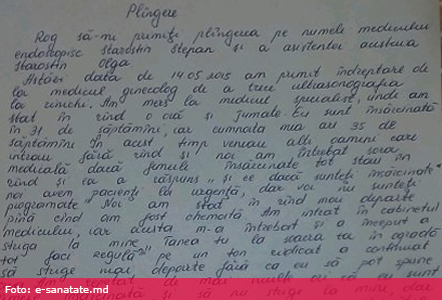 Plîngere
Rog să-mi primiți plîngerea pe numele medicului
endoscopisc Starostin Stepan și a asistentei acestuia
Starostin Olga.
Astăzi data de 14.05.2015 am primit îndreptare de
la medicul ginecolog de a trece ultrasonografia
la rinichi. Am mers la medicul specialist, unde am
stat în rînd o oră și jumate. Eu sunt însărcinată
în 31 de săptămîni, iar cumnata mea au 35 de
săptămîni În acest timp veneau alți oameni care
intrau fără rînd și noi am întrebat sora
medicală dacă femeile însărcinate tot stau în
rînd și ea a răspuns "și ce dacă sunteți însărcinate"
noi avem "pacienți la urgență, dar voi nu sunteți
programate" Noi am stat în rînd mai departe
pînă cînd am fost chemată Am intrat în cabinetul
medicului, iar acesta m-a întrebat și a început a
striga la mine "Tanea tu la scoara ca în ogradă
tot faci regulă?" pe un ton ridicat a continuat
să strige mai departe fără ca eu să pot spune
Am de mai multe ori să eu sunt
însărcinată și să nu strige la mine, dar
Foto: e-sanatate.md